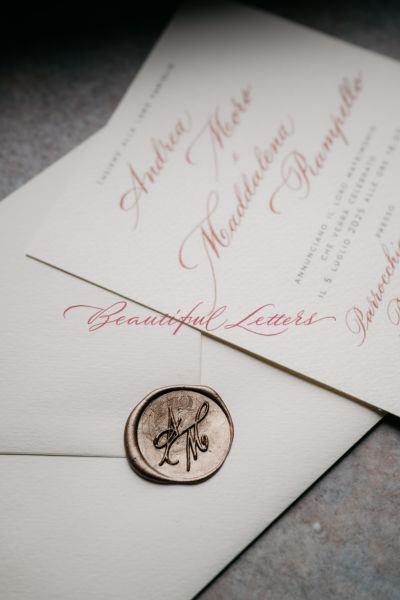 INSIEME ALLE LORO FAMIGLIE
Andrea Moro
e
Maddalena Rampello
ANNUNCIANO IL LORO MATRIMONIO
CHE VERRÀ CELEBRATO
IL 5 LUGLIO 2025 ALLE ORE 16:00
PRESSO
Parrocchia
Beautiful Letters
A
M